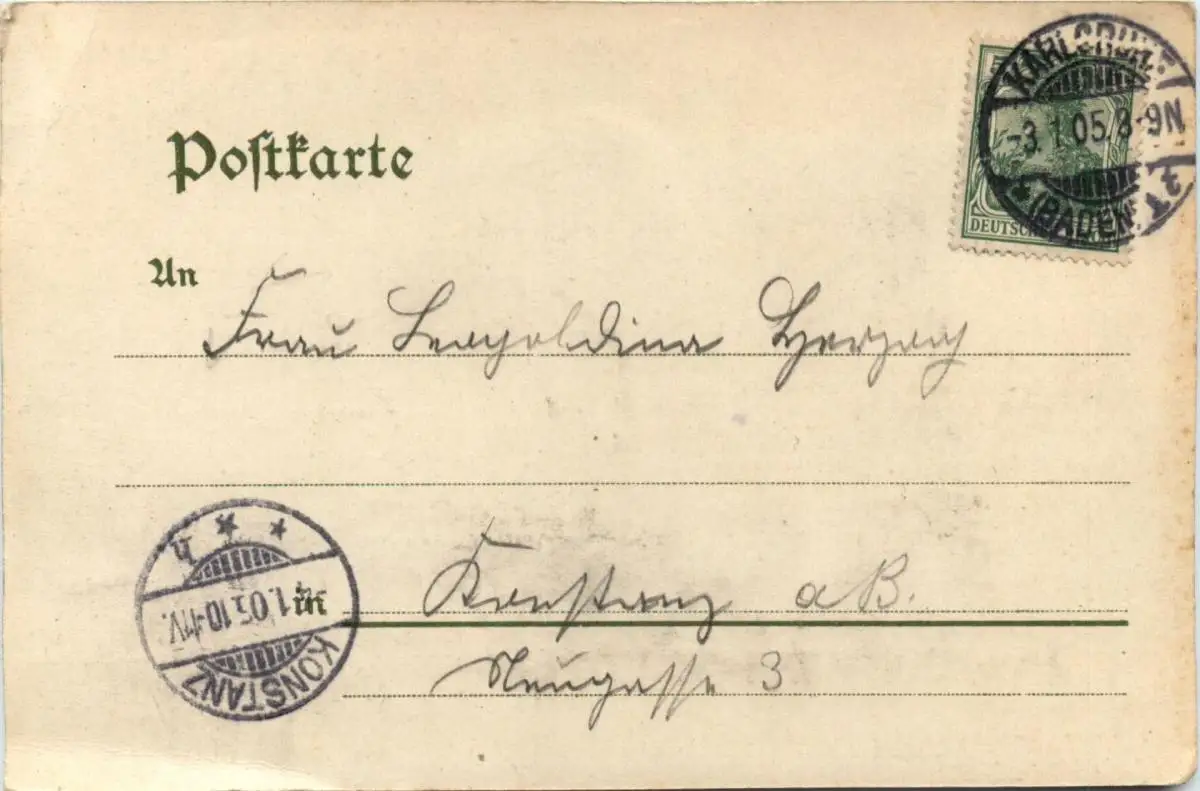 Postkarte
KARLSRUHE
-3.1.05.8-9N
* (BADEN)
DEUTSCHES
An
Frau Leopoldina Herzog
in
Konstanz a B.
Neugasse 3
KONSTANZ
1.05.10-11V.